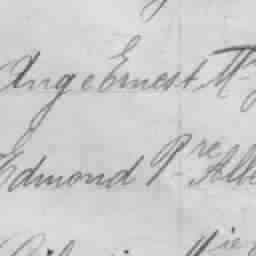 Ange Ernest M
Edmond Pre Alb
ie